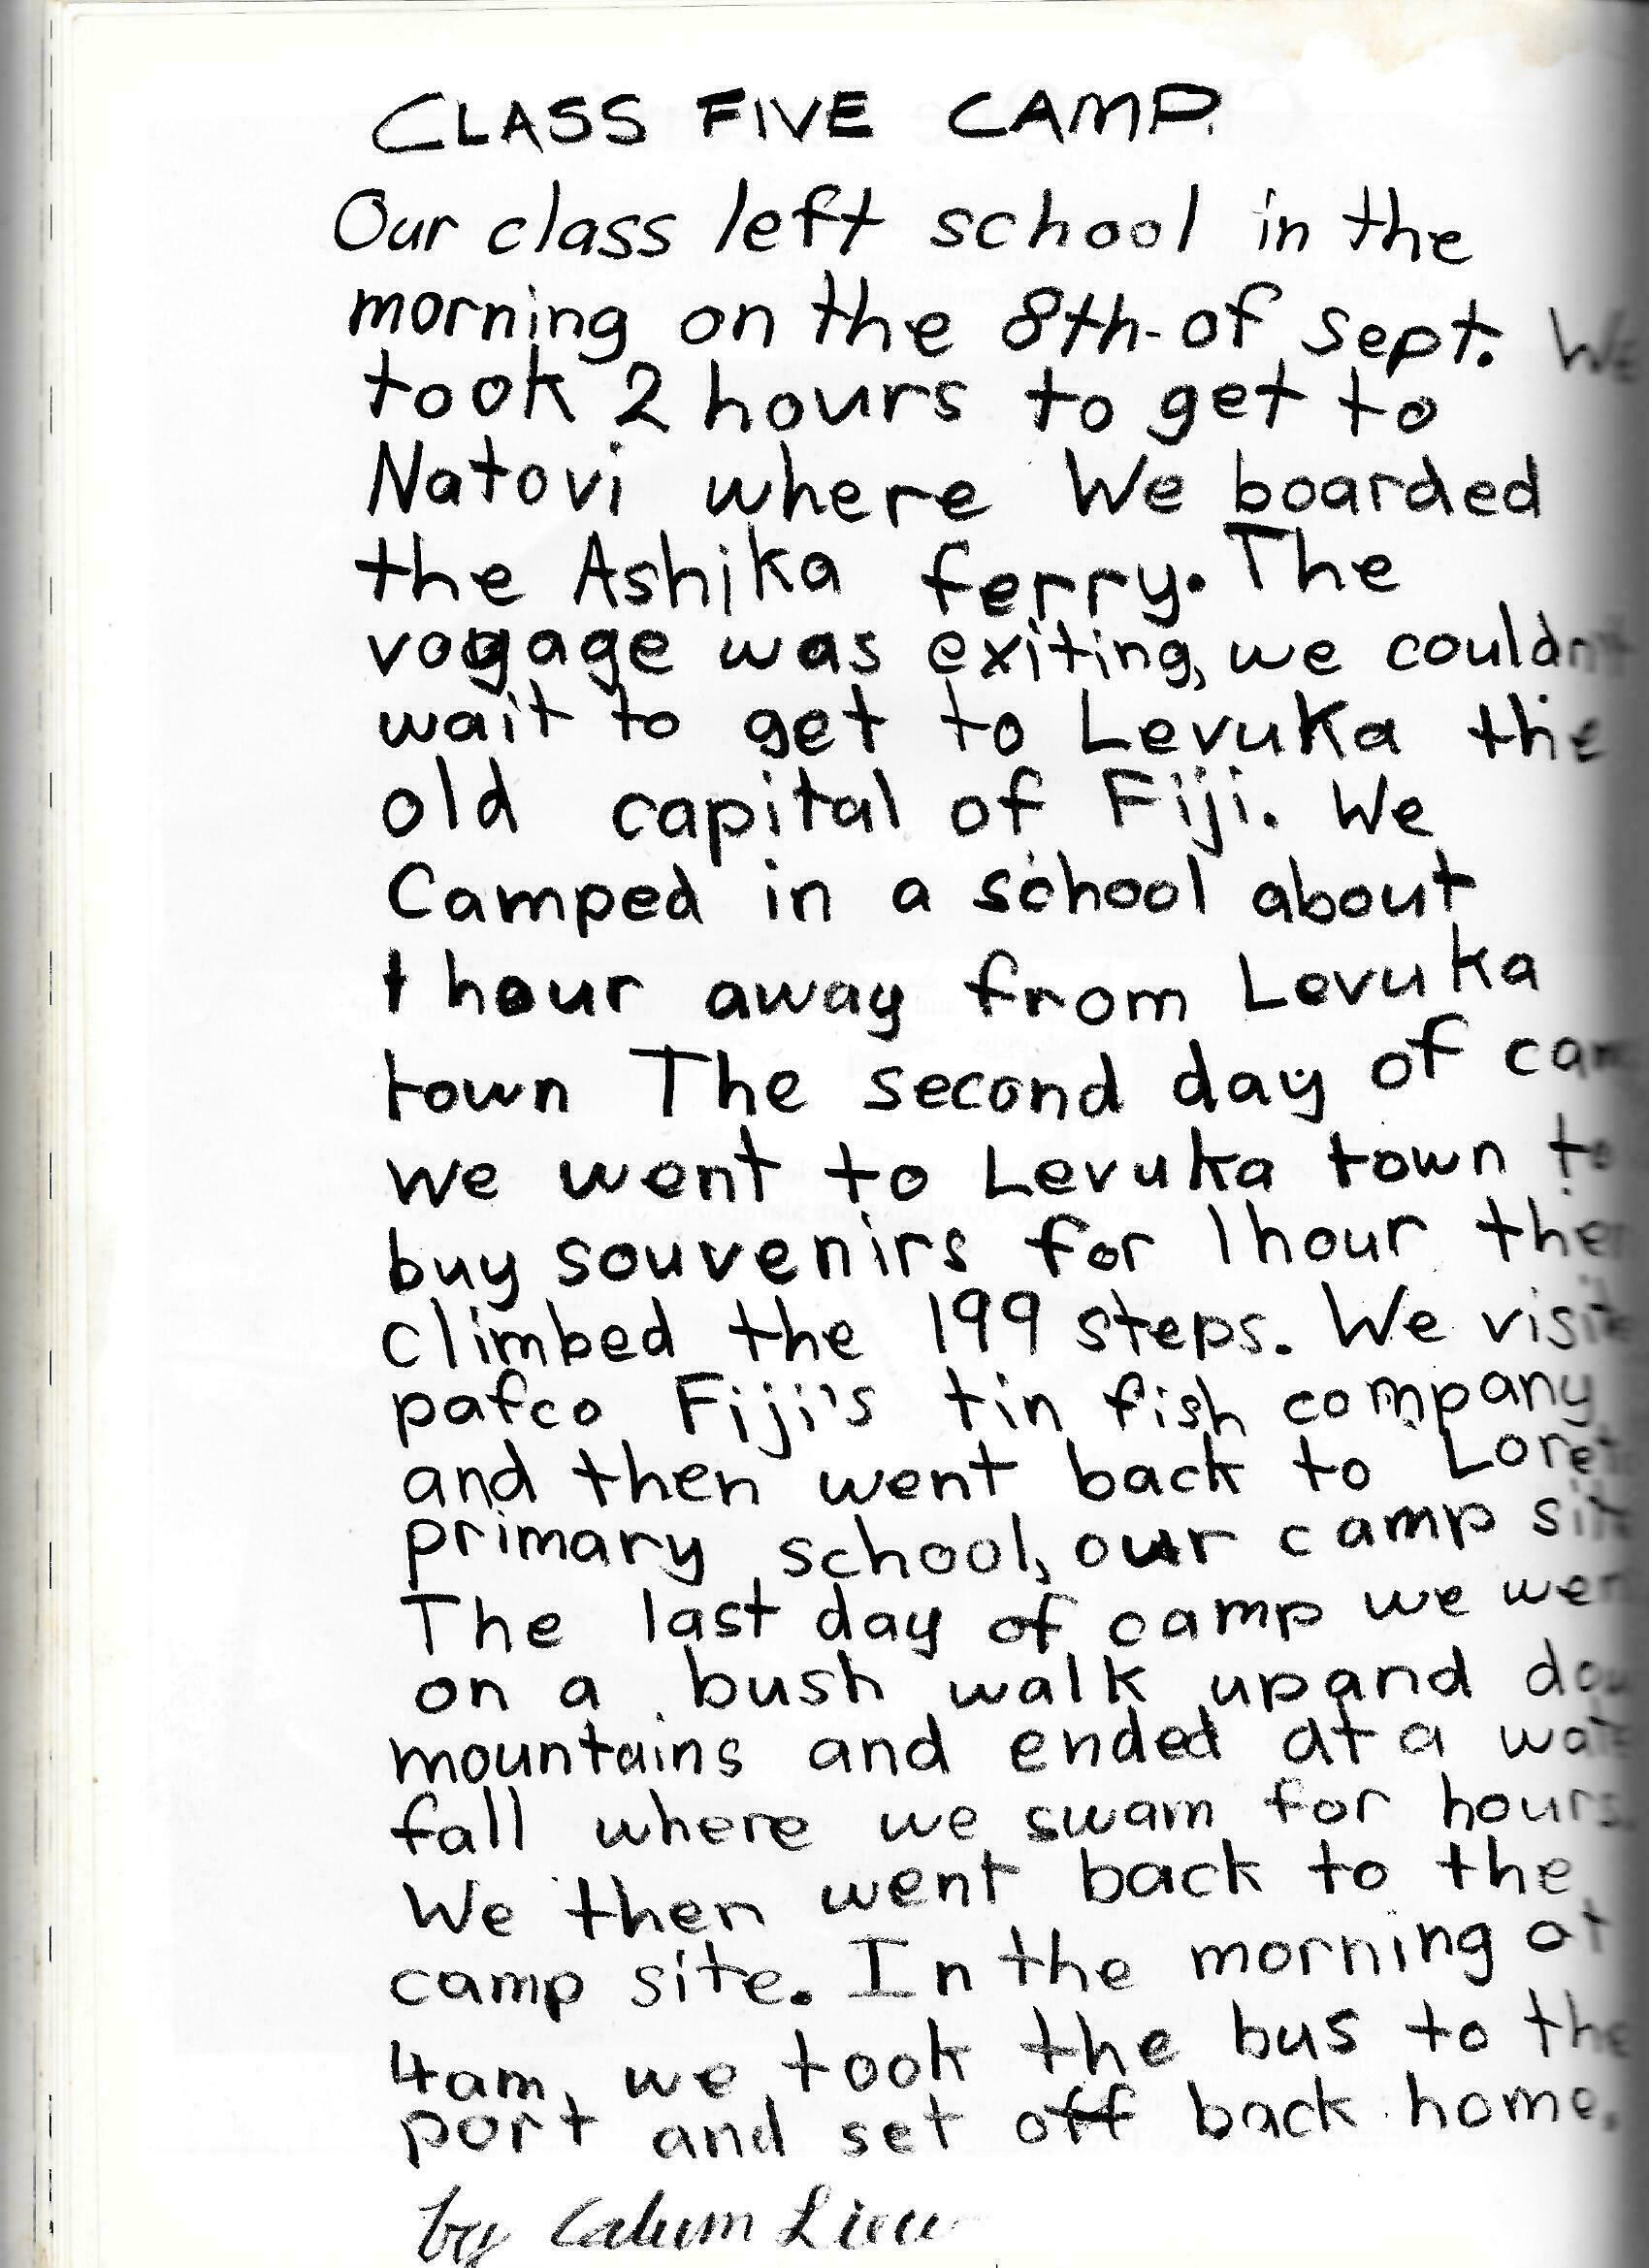 CLASS FIVE CAMP.
Our class left school in the
morning on the 8th of Sept. We
took 2 hours to get to
Natovi where We boarded
the Ashika ferry. The
voyage was exiting, we couldn't
wait to get to Levuka the
old capital of Fiji. We
Camped in a school about
1 hour away from Levuka
town The second day of cam
we went to Levuka town to
buy souvenirs for 1 hour then
climbed the 199 steps. We visite
pafco Fiji's tin fish company
and then went back to Loret
primary school, our camp sit
The last day of camp we wen
on a bush walk up and dow
mountains and ended at a wate
fall where we swam for hours.
We then went back to the
camp site. In the morning at
4am, we took the bus to the
port and set off back home.
by Calum